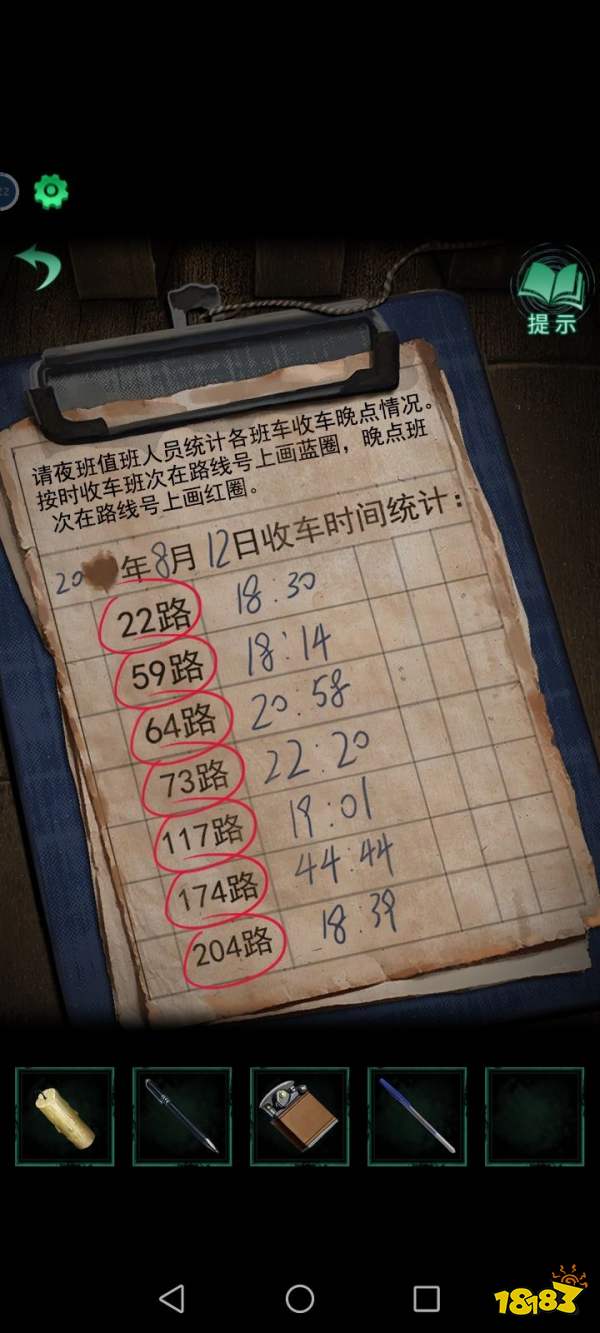 提示
请夜班值班人员统计各班车收车晚点情况。
按时收车班次在路线号上画蓝圈，晚点班
次在路线号上画红圈。
20 年8月12日收车时间统计：
22路 18:30
59路 18:14
64路 20:58
73路 22:20
117路 19:01
174路 44:44
204路 18:39
18183